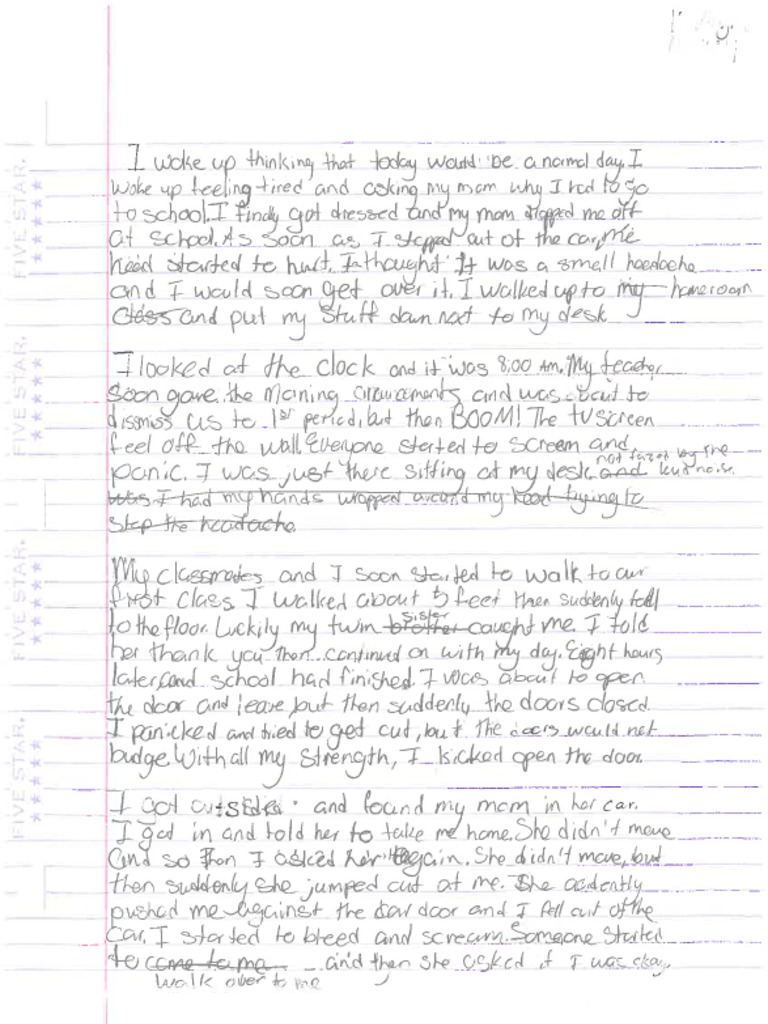 I woke up thinking that today would be a normal day. I
woke up feeling tired and asking my mom why I had to go
to school. I finally got dressed and my mom dropped me off
at school. As soon as I stepped out of the car, me
head started to hurt. I thought it was a small headache
and I would soon get over it. I walked up to my homeroom
class and put my stuff down next to my desk
I looked at the clock and it was 8:00 AM. My teacher
soon gave the morning announcements and was about to
dismiss us to 1st period, but then BOOM! The TV screen
feel off the wall. Everyone started to scream and
not fazed by the
panic. I was just there sitting at my desk and loud noise.
was I had my hands wrapped around my head trying to
stop the headache.
My classmates and I soon started to walk to our
first class. I walked about 5 feet then suddenly fell
sister
to the floor. Luckily my twin brother caught me. I told
her thank you then continued on with my day. Eight hours
later, and school had finished. I was about to open
the door and leave, but then suddenly the doors closed.
I panicked and tried to get out, but the doors would not
budge. With all my strength, I kicked open the door.
I got outside and found my mom in her car.
I got in and told her to take me home. She didn't move
and so then I asked her again. She didn't move, but
then suddenly she jumped out at me. She acidently
pushed me against the car door and I fell out of the
car. I started to bleed and scream. Someone started
to come to me and then she asked if I was okay.
walk over to me
FIVE STAR.
FIVE STAR.
FIVE STAR.
FIVE STAR.